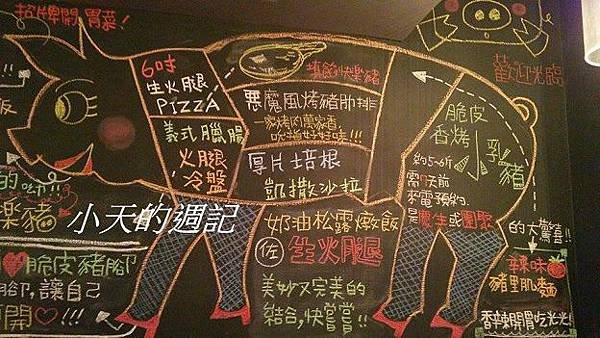 招牌開胃菜!
歡迎光臨
6吋
生火腿
PIZZA
義式臘腸
火腿
冷盤
惡魔風烤豬肋排
一家烤肉萬家香
厚片培根
凱撒沙拉
脆皮
香烤
乳豬
約5~6斤
需7天前
來電預約.
是慶生或團聚
的大驚喜!!
的呦!!!
樂豬
小天的週記
脆皮豬腳
腳,讓自己
開♡!!!
奶油松露燉飯
佐 生火腿
美妙又完美的
結合,快嘗嘗!!
辣味
豬里肌麵
香辣開胃吃光光!